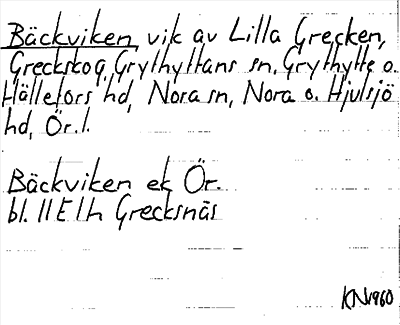 Bäckviken, vik av Lilla Grecken,
Greckskog, Grythyttans sn, Grythytte o.
Hällefors hd, Nora sn, Nora o. Hjulsjö
hd, Ör. l.
Bäckviken ek Ör.
bl. 11 E 1h Grecksnäs
KN 1960